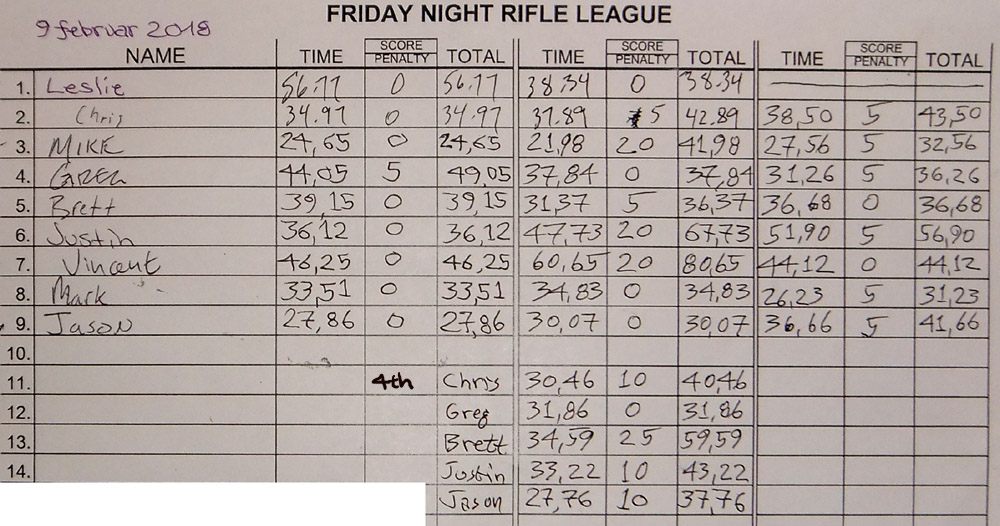 FRIDAY NIGHT RIFLE LEAGUE
9 februar 2018
NAME TIME SCORE PENALTY TOTAL TIME SCORE PENALTY TOTAL TIME SCORE PENALTY TOTAL
1. Leslie 56.77 0 56.77 38.34 0 38.34
2. Chris 34.97 0 34.97 37.89 5 42.89 38,50 5 43,50
3. MIKE 24,65 0 24,65 21,98 20 41,98 27,56 5 32,56
4. GREG 44,05 5 49,05 37,84 0 37,84 31,26 5 36,26
5. Brett 39,15 0 39,15 31,37 5 36,37 36,68 0 36,68
6. Justin 36,12 0 36,12 47,73 20 67,73 51,90 5 56,90
7. Vincent 46,25 0 46,25 60,65 20 80,65 44,12 0 44,12
8. Mark 33,51 0 33,51 34,83 0 34,83 26,23 5 31,23
9. Jason 27,86 0 27,86 30,07 0 30,07 36,66 5 41,66
10.
11. 4th Chris 30,46 10 40,46
12. Greg 31,86 0 31,86
13. Brett 34,59 25 59,59
14. Justin 33,22 10 43,22
Jason 27,76 10 37,76